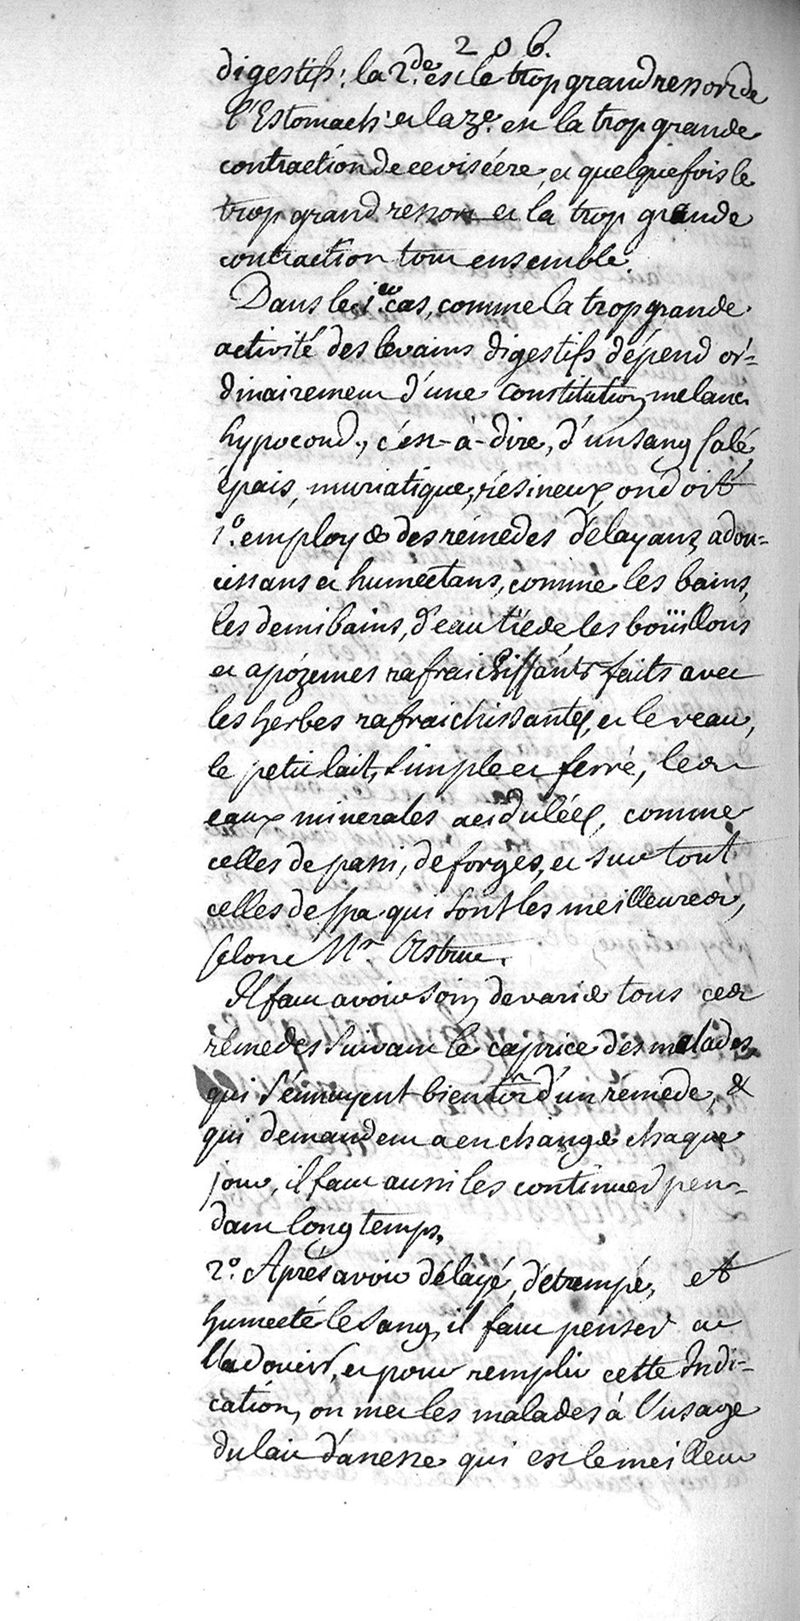 206.
digestifs: la 2de. est le trop grand ressort de
l'Estomach: et la 3e. est la trop grande
contraction de ce viscére, et quelque fois le
trop grand ressort et la trop grande
contraction tout ensemble.
Dans le 1er. cas, comme la trop grande
activité des levains digestifs dépend or-
dinairement d'une constitution melanc.
hypocond., c'est-à-dire, d'un sang salé,
épais, muriatique, résineux, on doit
1.° employer des rémedes délayans, adou-
cissans et humectans, comme les bains,
les demi bains, d'eau tiéde les boüillons
et apózemes rafraichissants faits avec
les herbes rafraichissantes, et le veau,
le petit lait, simple et ferré, les
eaux minerales acidulées, comme
celles de passi, de forges, et sur tout
celles de spa qui sont les meilleures,
selon Mr. Astruc.
Il faut avoir soin de varier tous ces
rémedes suivant le caprice des malades
qui s'ennuyent bientôt d'un rémede, &
qui demandent a en changer chaque
jour, il faut aussi les continuer pen-
dant long temps.
2.° Après avoir délayé, détrempé, et
humecté le sang, il faut penser a
l'adoucir, et pour remplir cette Indi-
cation, on met les malades à l'usage
du lait d'anesse qui est le meilleur